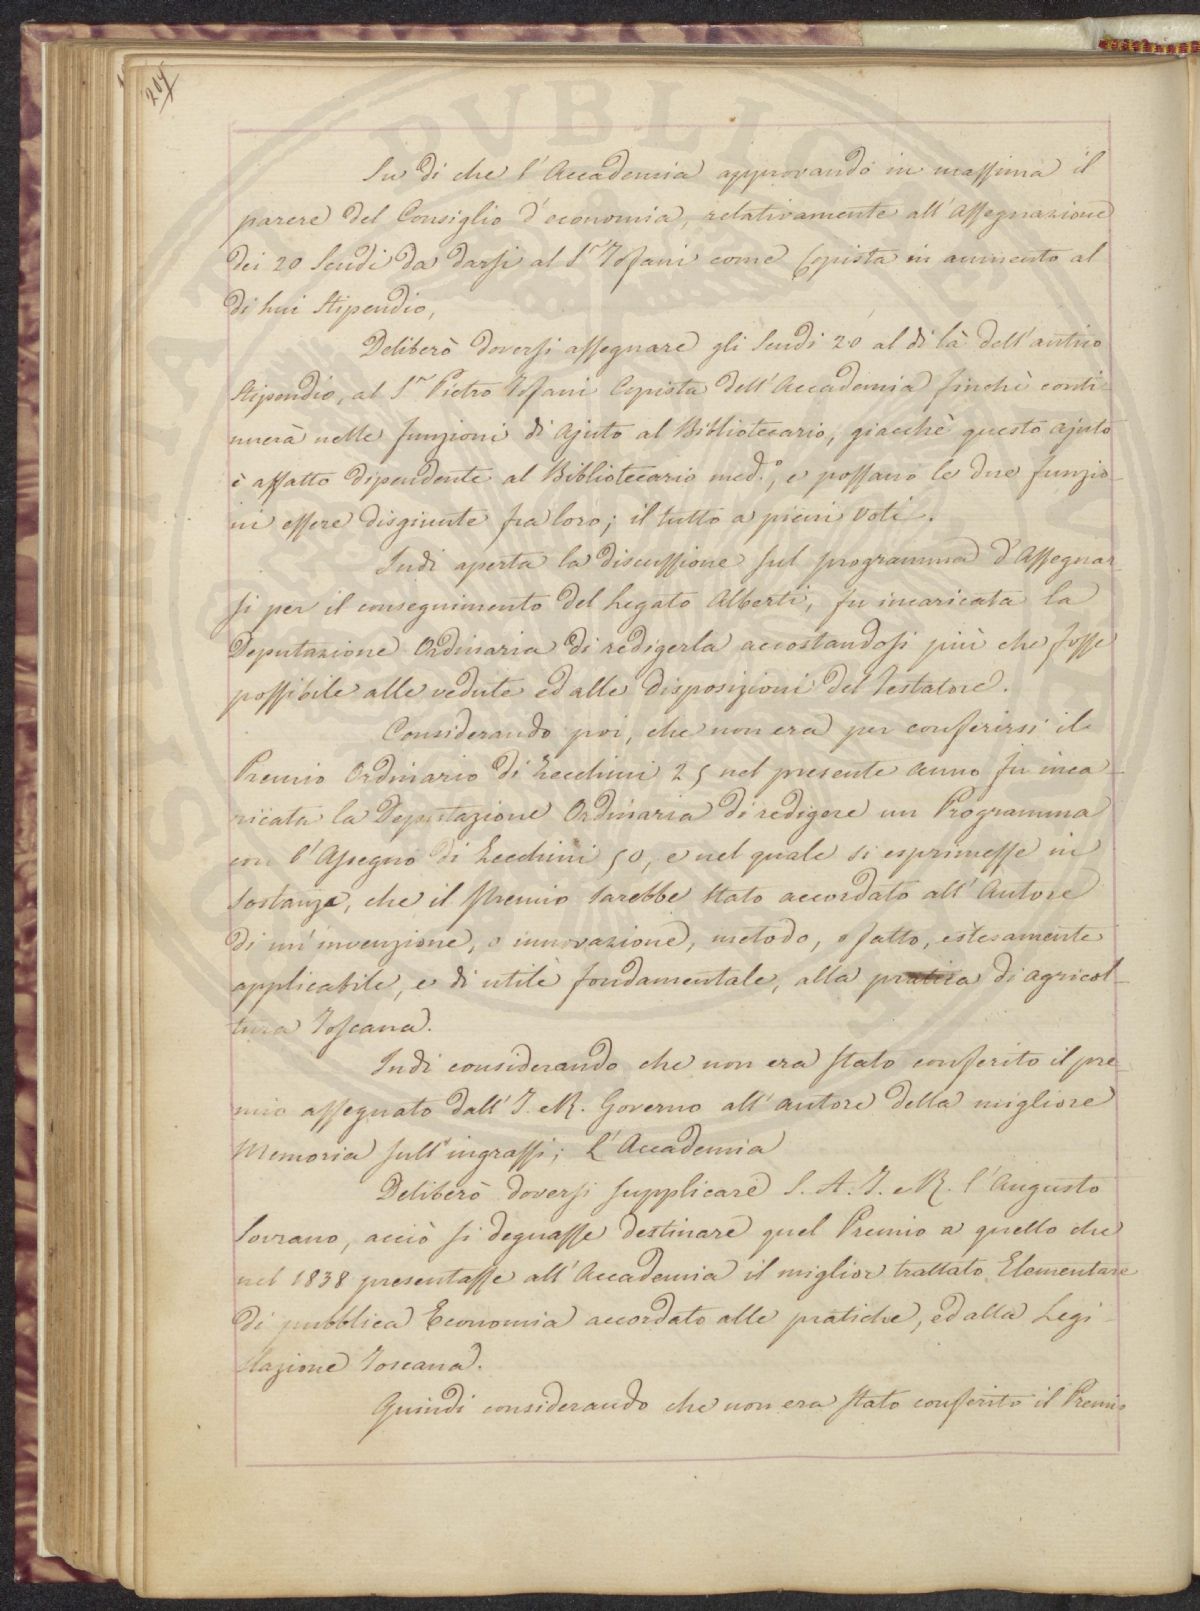 204
Su di che l'Accademia approvando in massima il
parere del Consiglio d'economia, relativamente all'Assegnazione
dei 20 Scudi da darsi al S.r Tofani come Copista in aumento al
di lui Stipendio,
Deliberò doversi assegnare gli Scudi 20 al di là dell'antico
Stipendio, al S.r Pietro Tofani Copista dell'Accademia finchè conti-
nuerà nelle funzioni di Ajuto al Bibliotecario, giacchè questo ajuto
è affatto dipendente al Bibliotecario med.o, e possano le due funzio-
ni essere disgiunte fra loro; il tutto a pieni voti.
Indi aperta la discussione sul programma d'Assegnar-
si per il conseguimento del Legato Alberti, fu incaricata la
Deputazione Ordinaria di redigerla accostandosi più che fosse
possibile alle vedute ed alle disposizioni del Testatore.
Considerando poi, che non era per conferirsi il
Premio Ordinario di Zecchini 25 nel presente anno fu inca-
ricata la Deputazione Ordinaria di redigere un Programma
con l'Assegno di Zecchini 50, e nel quale si esprimesse in
Sostanza, che il Premio sarebbe stato accordato all'Autore
di un'invenzione, o innovazione, metodo, o fatto, estesamente
applicabile, e di utile fondamentale, alla pratica di agricol-
tura Toscana.
Indi considerando che non era stato conferito il pre-
mio assegnato dall'I. e R. Governo all'autore della migliore
Memoria sull'ingrassi; L'Accademia
Deliberò doversi supplicare S. A. I. e R. l'Augusto
Sovrano, acciò si degnasse destinare quel Premio a quello che
nel 1838 presentasse all'Accademia il miglior trattato Elementare
di pubblica Economia accordato alle pratiche, ed alla Legi-
slazione Toscana.
Quindi considerando che non era stato conferito il Premio